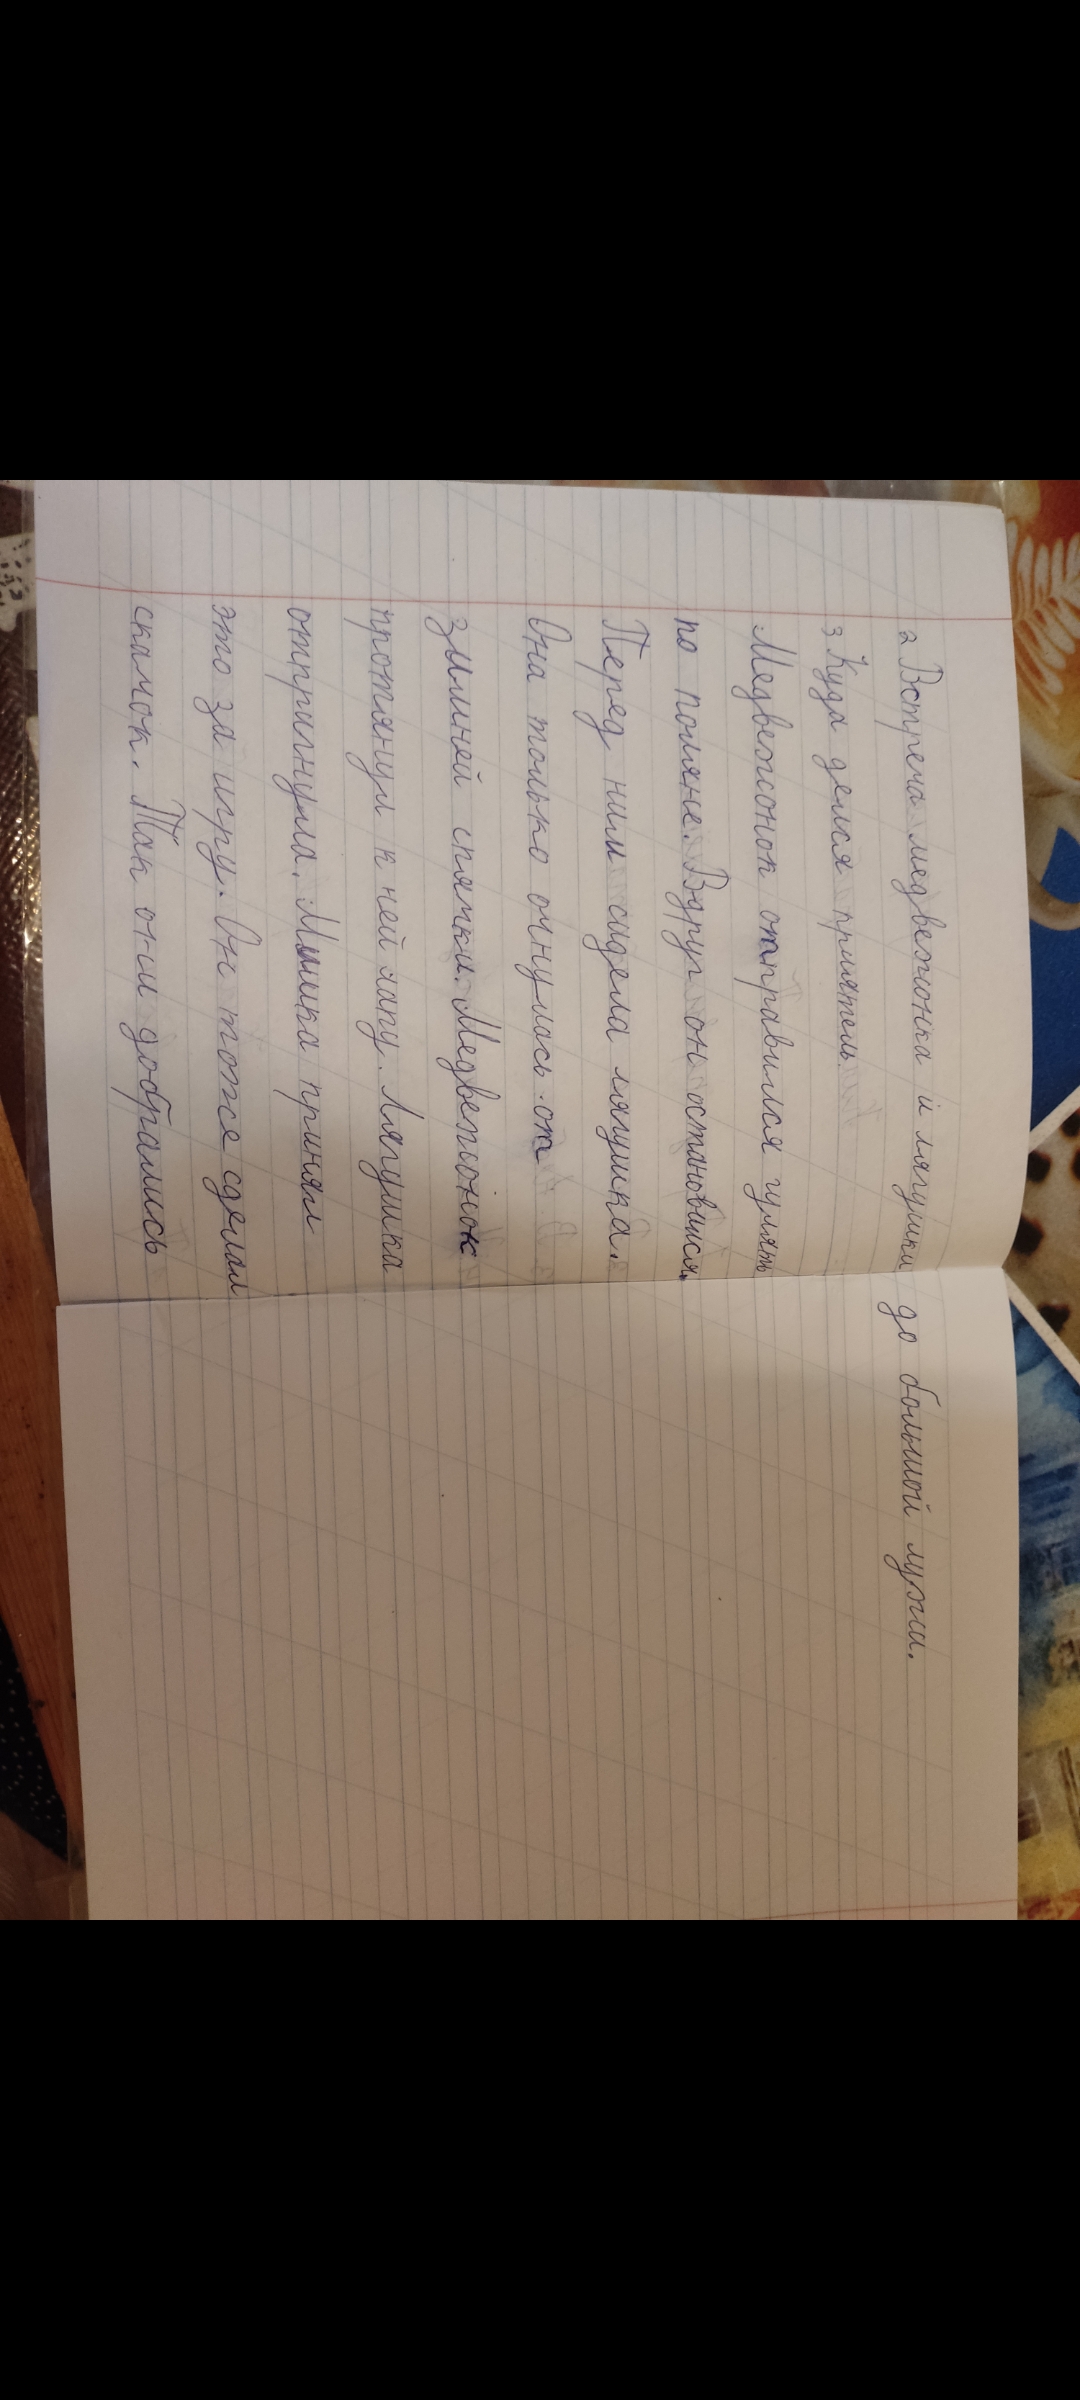 2 Встреча медвежонка и лягушки
3 Куда делся приятель.
Медвежонок отправился гулять
по поляне. Вдруг он остановился.
Перед ним сидела лягушка.
Она только очнулась от
зимней спячки. Медвежонок
протянул к ней лапу. Лягушка
отпригнула. Мишка принял
это за игру. Он тоже сделал
скамок. Так они добрались
до большой лужи.